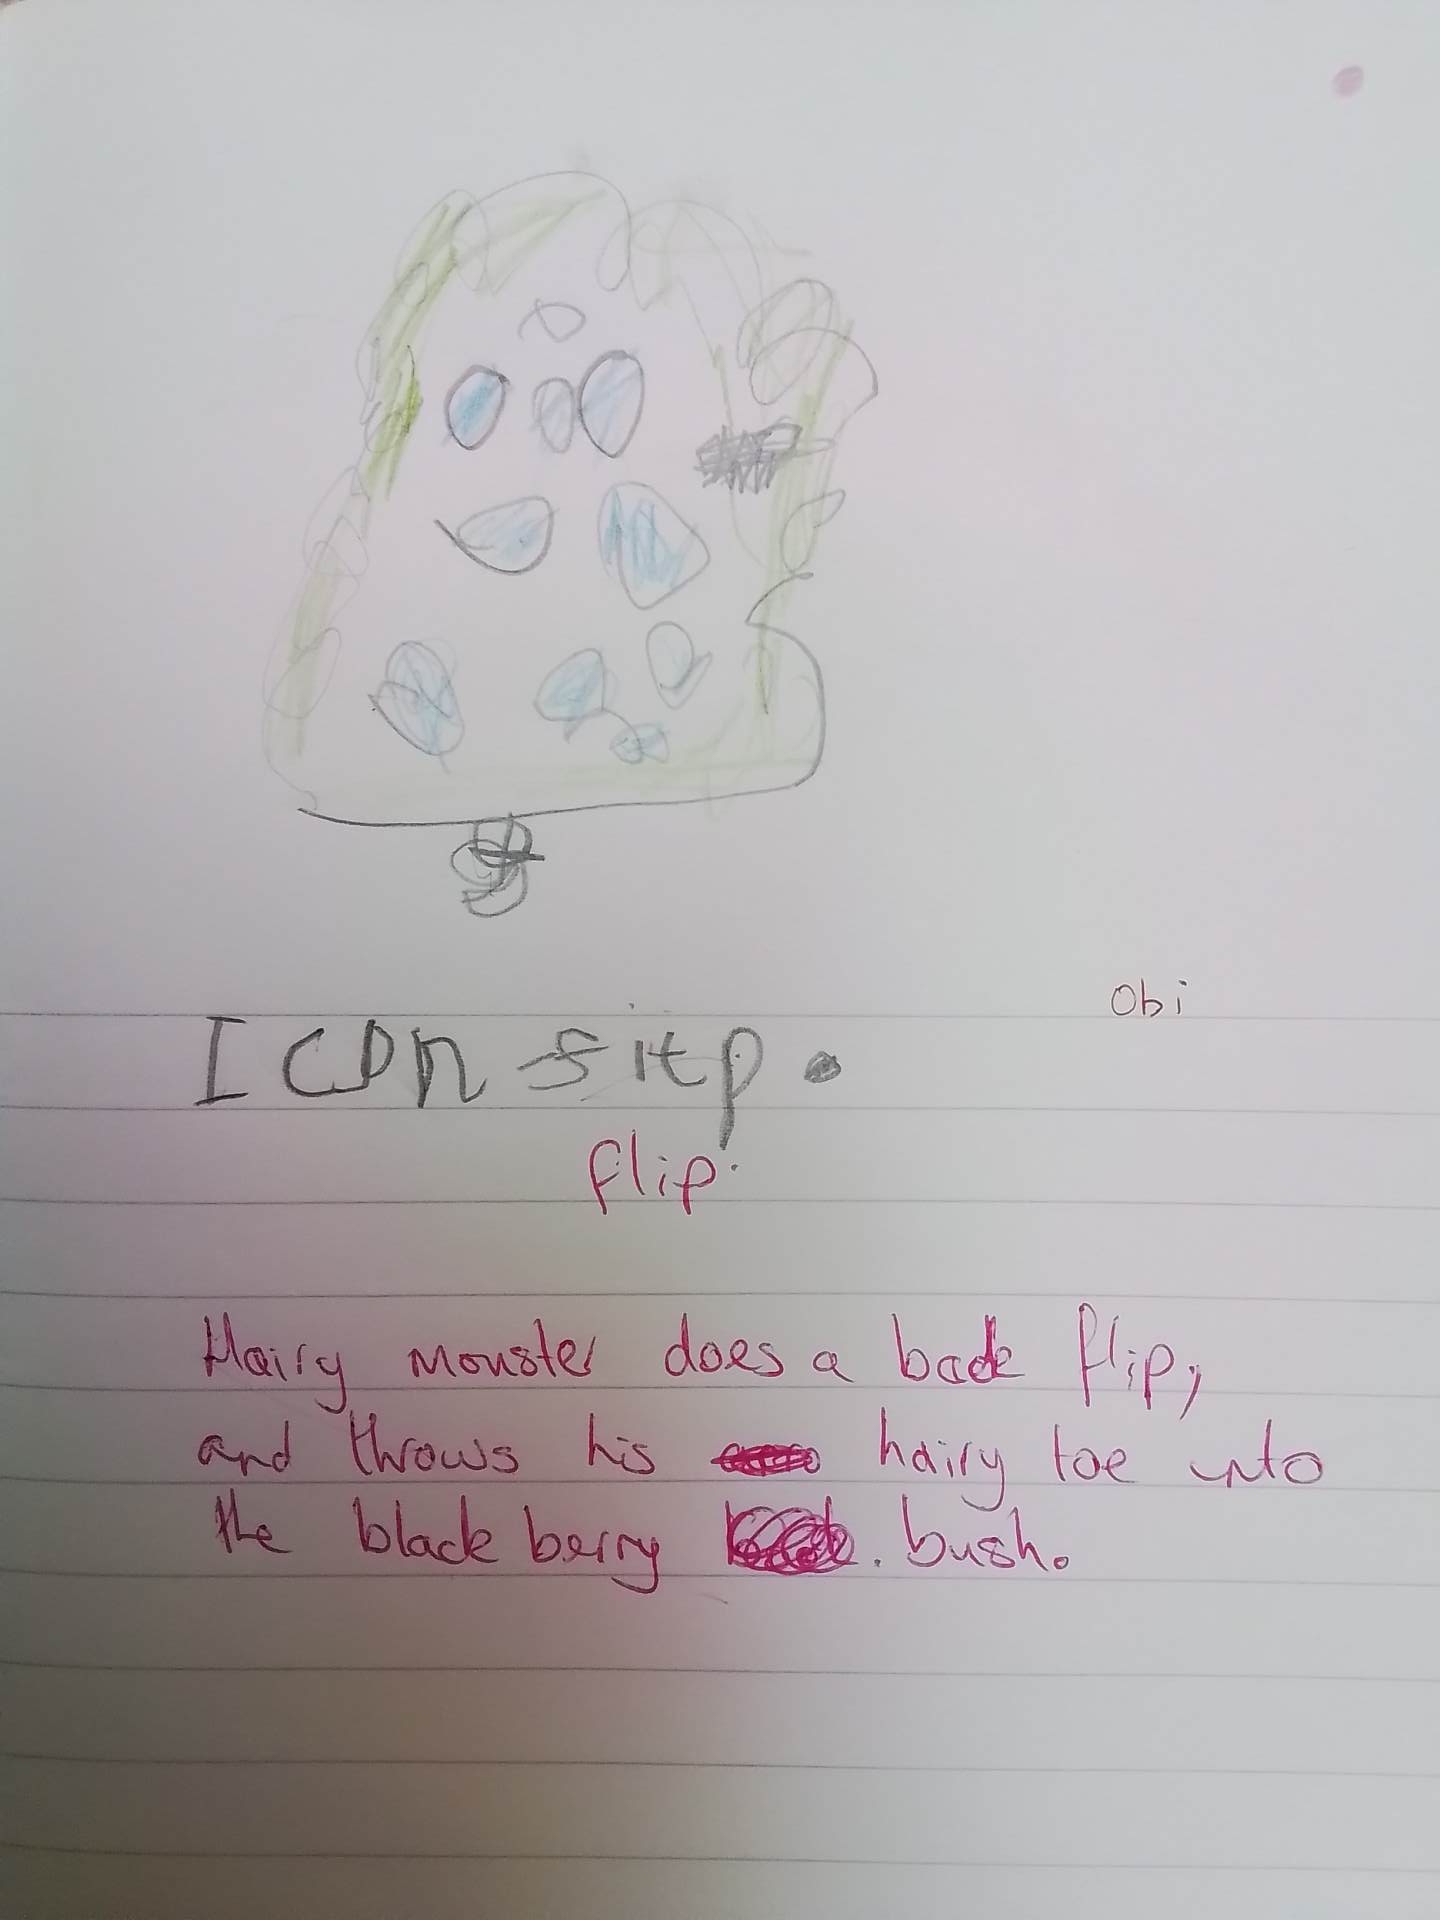 Obi
I can fitp.
flip.
Hairy monster does a back flip,
and throws his hairy toe into
the black berry bush.